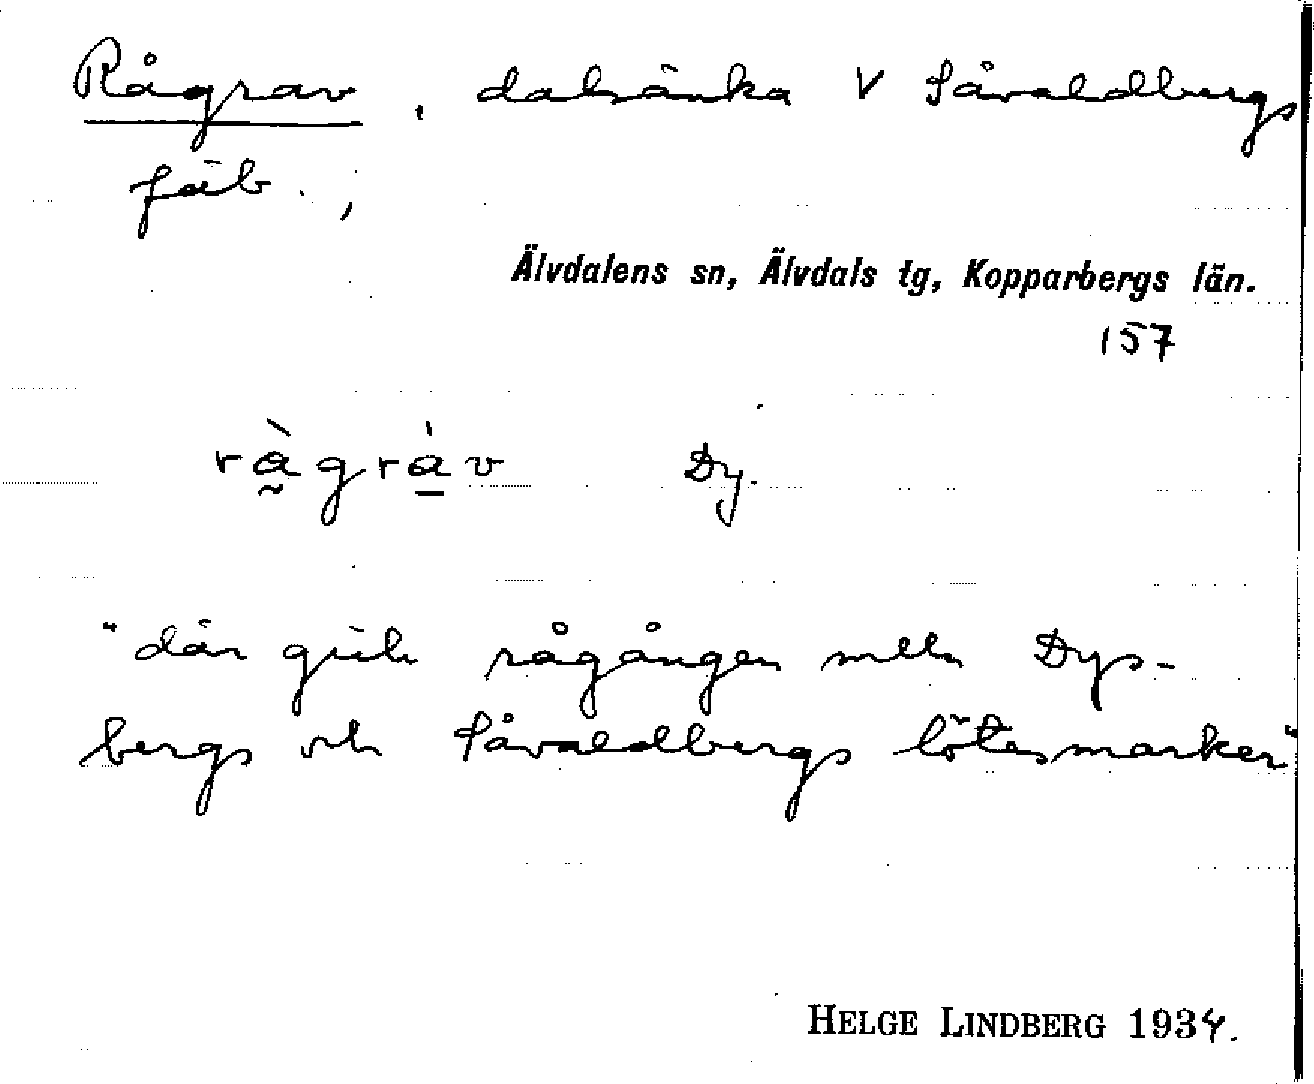 Rågrav, dalsänka V Såvaldbergs
fäb.,
Älvdalens sn, Älvdals tg, Kopparbergs län.
157
rå̀gràv Dy.
"där gick rågången mell. Dys-
bergs och Såvaldbergs lötesmarker"
HELGE LINDBERG 1934.